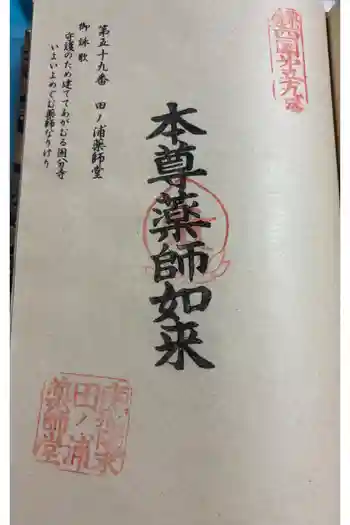 四国第五九番
本尊薬師如来
第五十九番　田ノ浦薬師堂
御詠歌
守護のため建ててあがむる国分寺
いよいよめぐむ薬師なりけり
田ノ浦
薬師堂